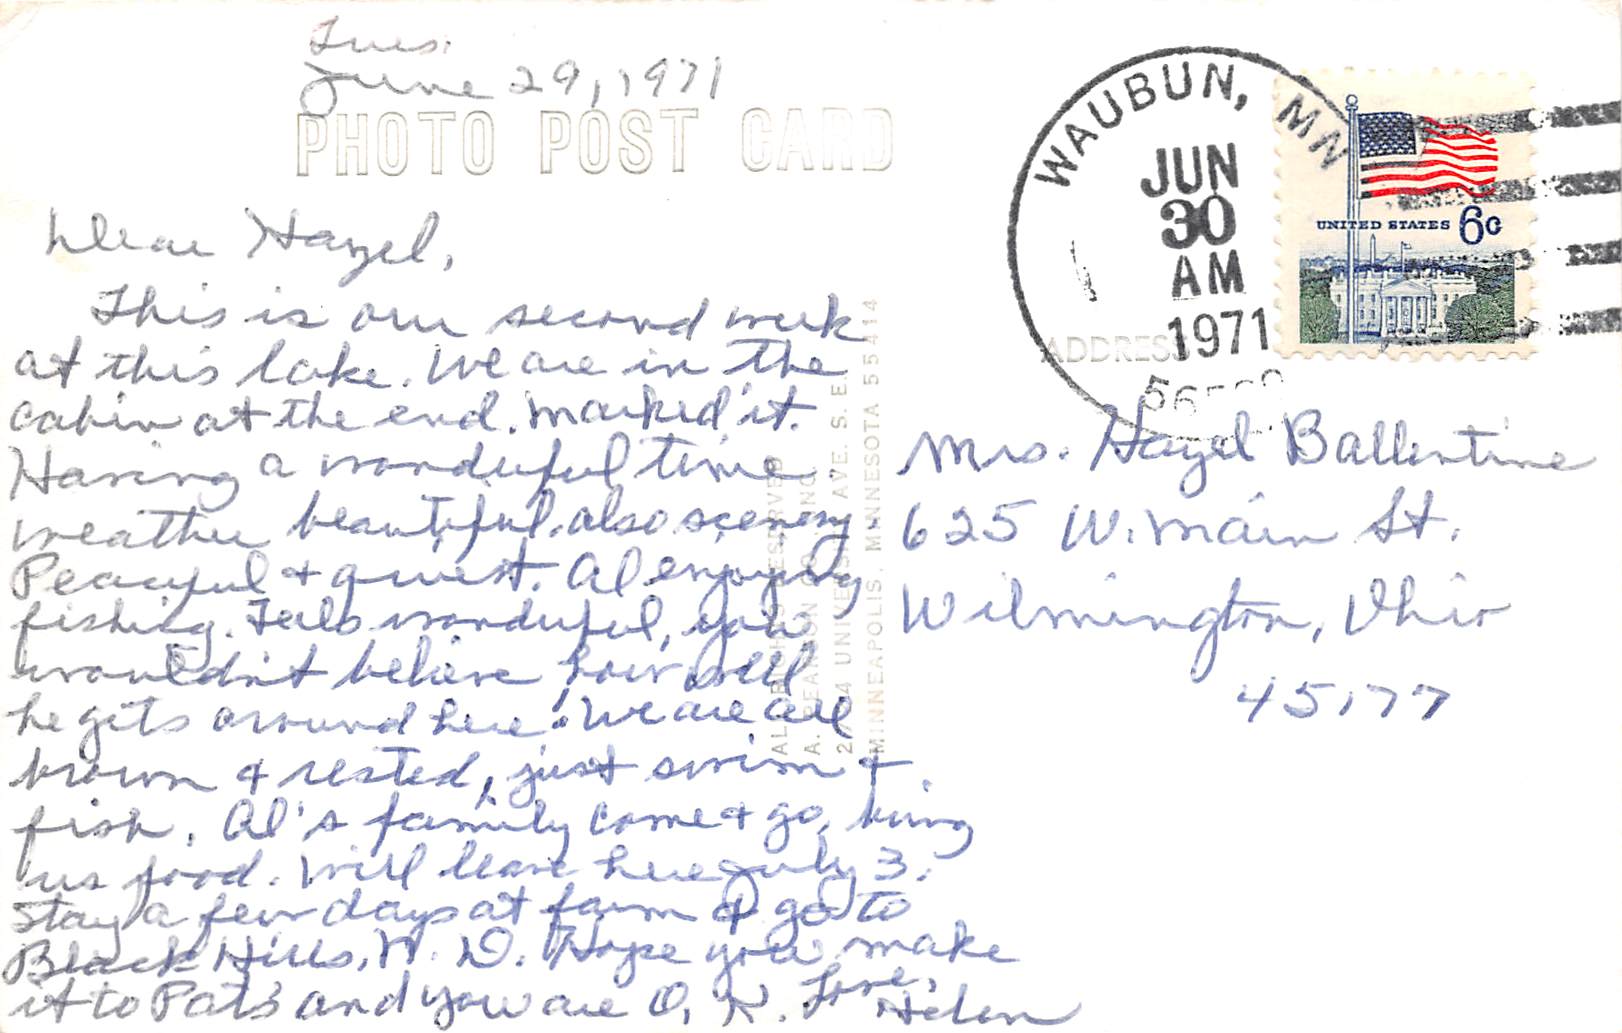 Tues.
June 29, 1971
PHOTO POST CARD
Dear Hazel,
This is our second week
at this lake. We are in the
cabin at the end. Marked it.
Having a wonderful time
weather beautiful, also scenery
Peaceful & quiest. Al enjoying
fishing. Feels wonderful, you
wouldn't believe how well
he gets around here! We are all
brown & rested, just swim &
fish. Al's family come & go, bring
us food. Will leave here July 3.
Stay a few days at farm & go to
Black Hills, N. D. Hope you make
it to Pat's and you are O. K. Love,
Helen
WAUBUN, MN
JUN
30
AM
1971
UNITED STATES 6c
ADDRESS
Mrs. Hazel Ballentine
625 W. Main St.
Wilmington, Ohio
45177
MINNEAPOLIS, MINNESOTA 55414